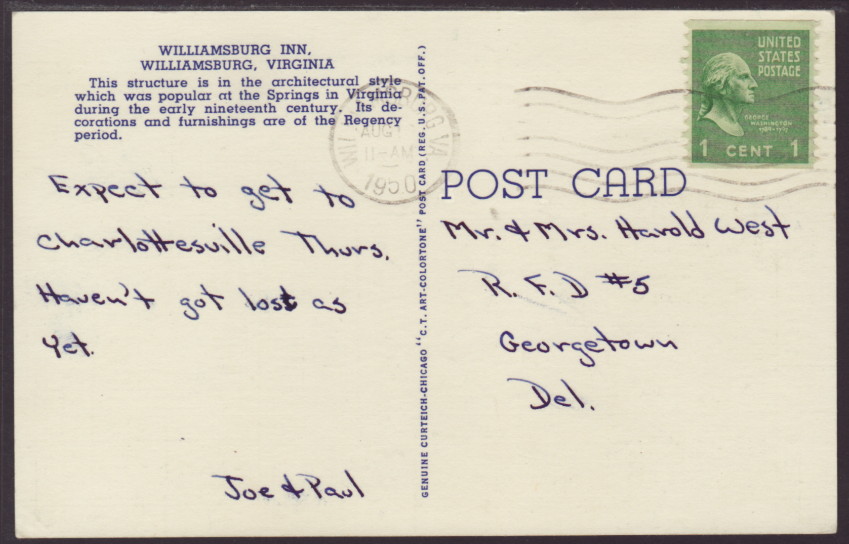 WILLIAMSBURG INN,
WILLIAMSBURG, VIRGINIA
This structure is in the architectural style
which was popular at the Springs in Virginia
during the early nineteenth century. Its de-
corations and furnishings are of the Regency
period.
Expect to get to
Charlottesville Thurs.
Haven't got lost as
yet.
Joe & Paul
GENUINE CURTEICH-CHICAGO "C.T. ART-COLORTONE" POST CARD (REG. U.S. PAT. OFF.)
WILLIAMSBURG, VA
AUG 1
11-AM
1950
UNITED
STATES
POSTAGE
GEORGE
WASHINGTON
1 CENT 1
POST CARD
Mr. & Mrs. Harold West
R.F.D #5
Georgetown
Del.